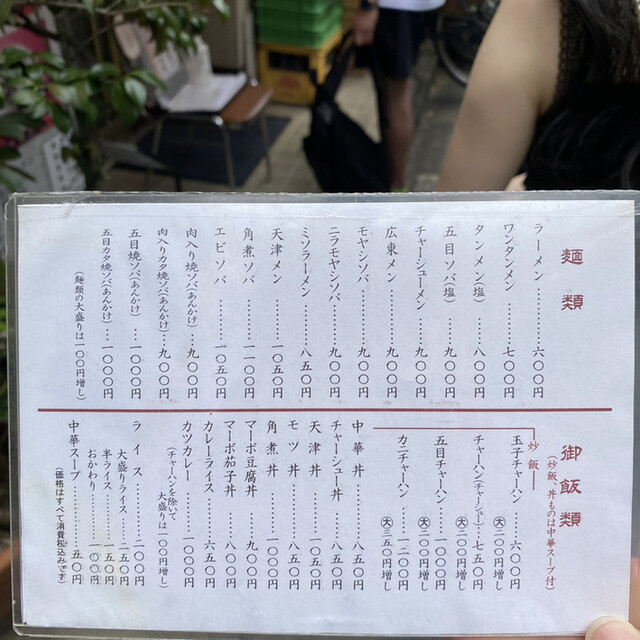 麺類
ラーメン………六〇〇円
ワンタンメン……七〇〇円
タンメン(塩)……八〇〇円
五目ソバ(塩)……九〇〇円
チャーシューメン……九〇〇円
広東メン………九〇〇円
モヤシソバ………九〇〇円
ニラモヤシソバ……九〇〇円
ミソラーメン……八五〇円
天津メン………一〇五〇円
角煮ソバ………一一〇〇円
エビソバ………一〇五〇円
肉入り焼ソバ(あんかけ)…九〇〇円
肉入りカタ焼ソバ(あんかけ)…九〇〇円
五目焼ソバ(あんかけ)…一〇〇〇円
五目カタ焼ソバ(あんかけ)…一〇〇〇円
(麺類の大盛りは一〇〇円増し)
御飯類
(炒飯、丼ものは中華スープ付)
炒飯
玉子チャーハン……六〇〇円
大二〇〇円増し
チャーハン(チャーシュー)…七五〇円
大二〇〇円増し
五目チャーハン……一〇〇〇円
大二〇〇円増し
カニチャーハン……一二〇〇円
大三五〇円増し
中華丼………八五〇円
チャーシュー丼……八五〇円
天津丼………一〇五〇円
モツ丼………八五〇円
角煮丼………一一〇〇円
マーボ茄子丼……八〇〇円
マーボ豆腐丼……九〇〇円
カレーライス……六五〇円
カツカレー……一〇〇〇円
(チャーハンを除いて
大盛りは一〇〇円増し)
ライス………二〇〇円
大盛りライス…二五〇円
半ライス……一五〇円
おかわり……一〇〇円
中華スープ……五〇円
(価格はすべて消費税込みです)